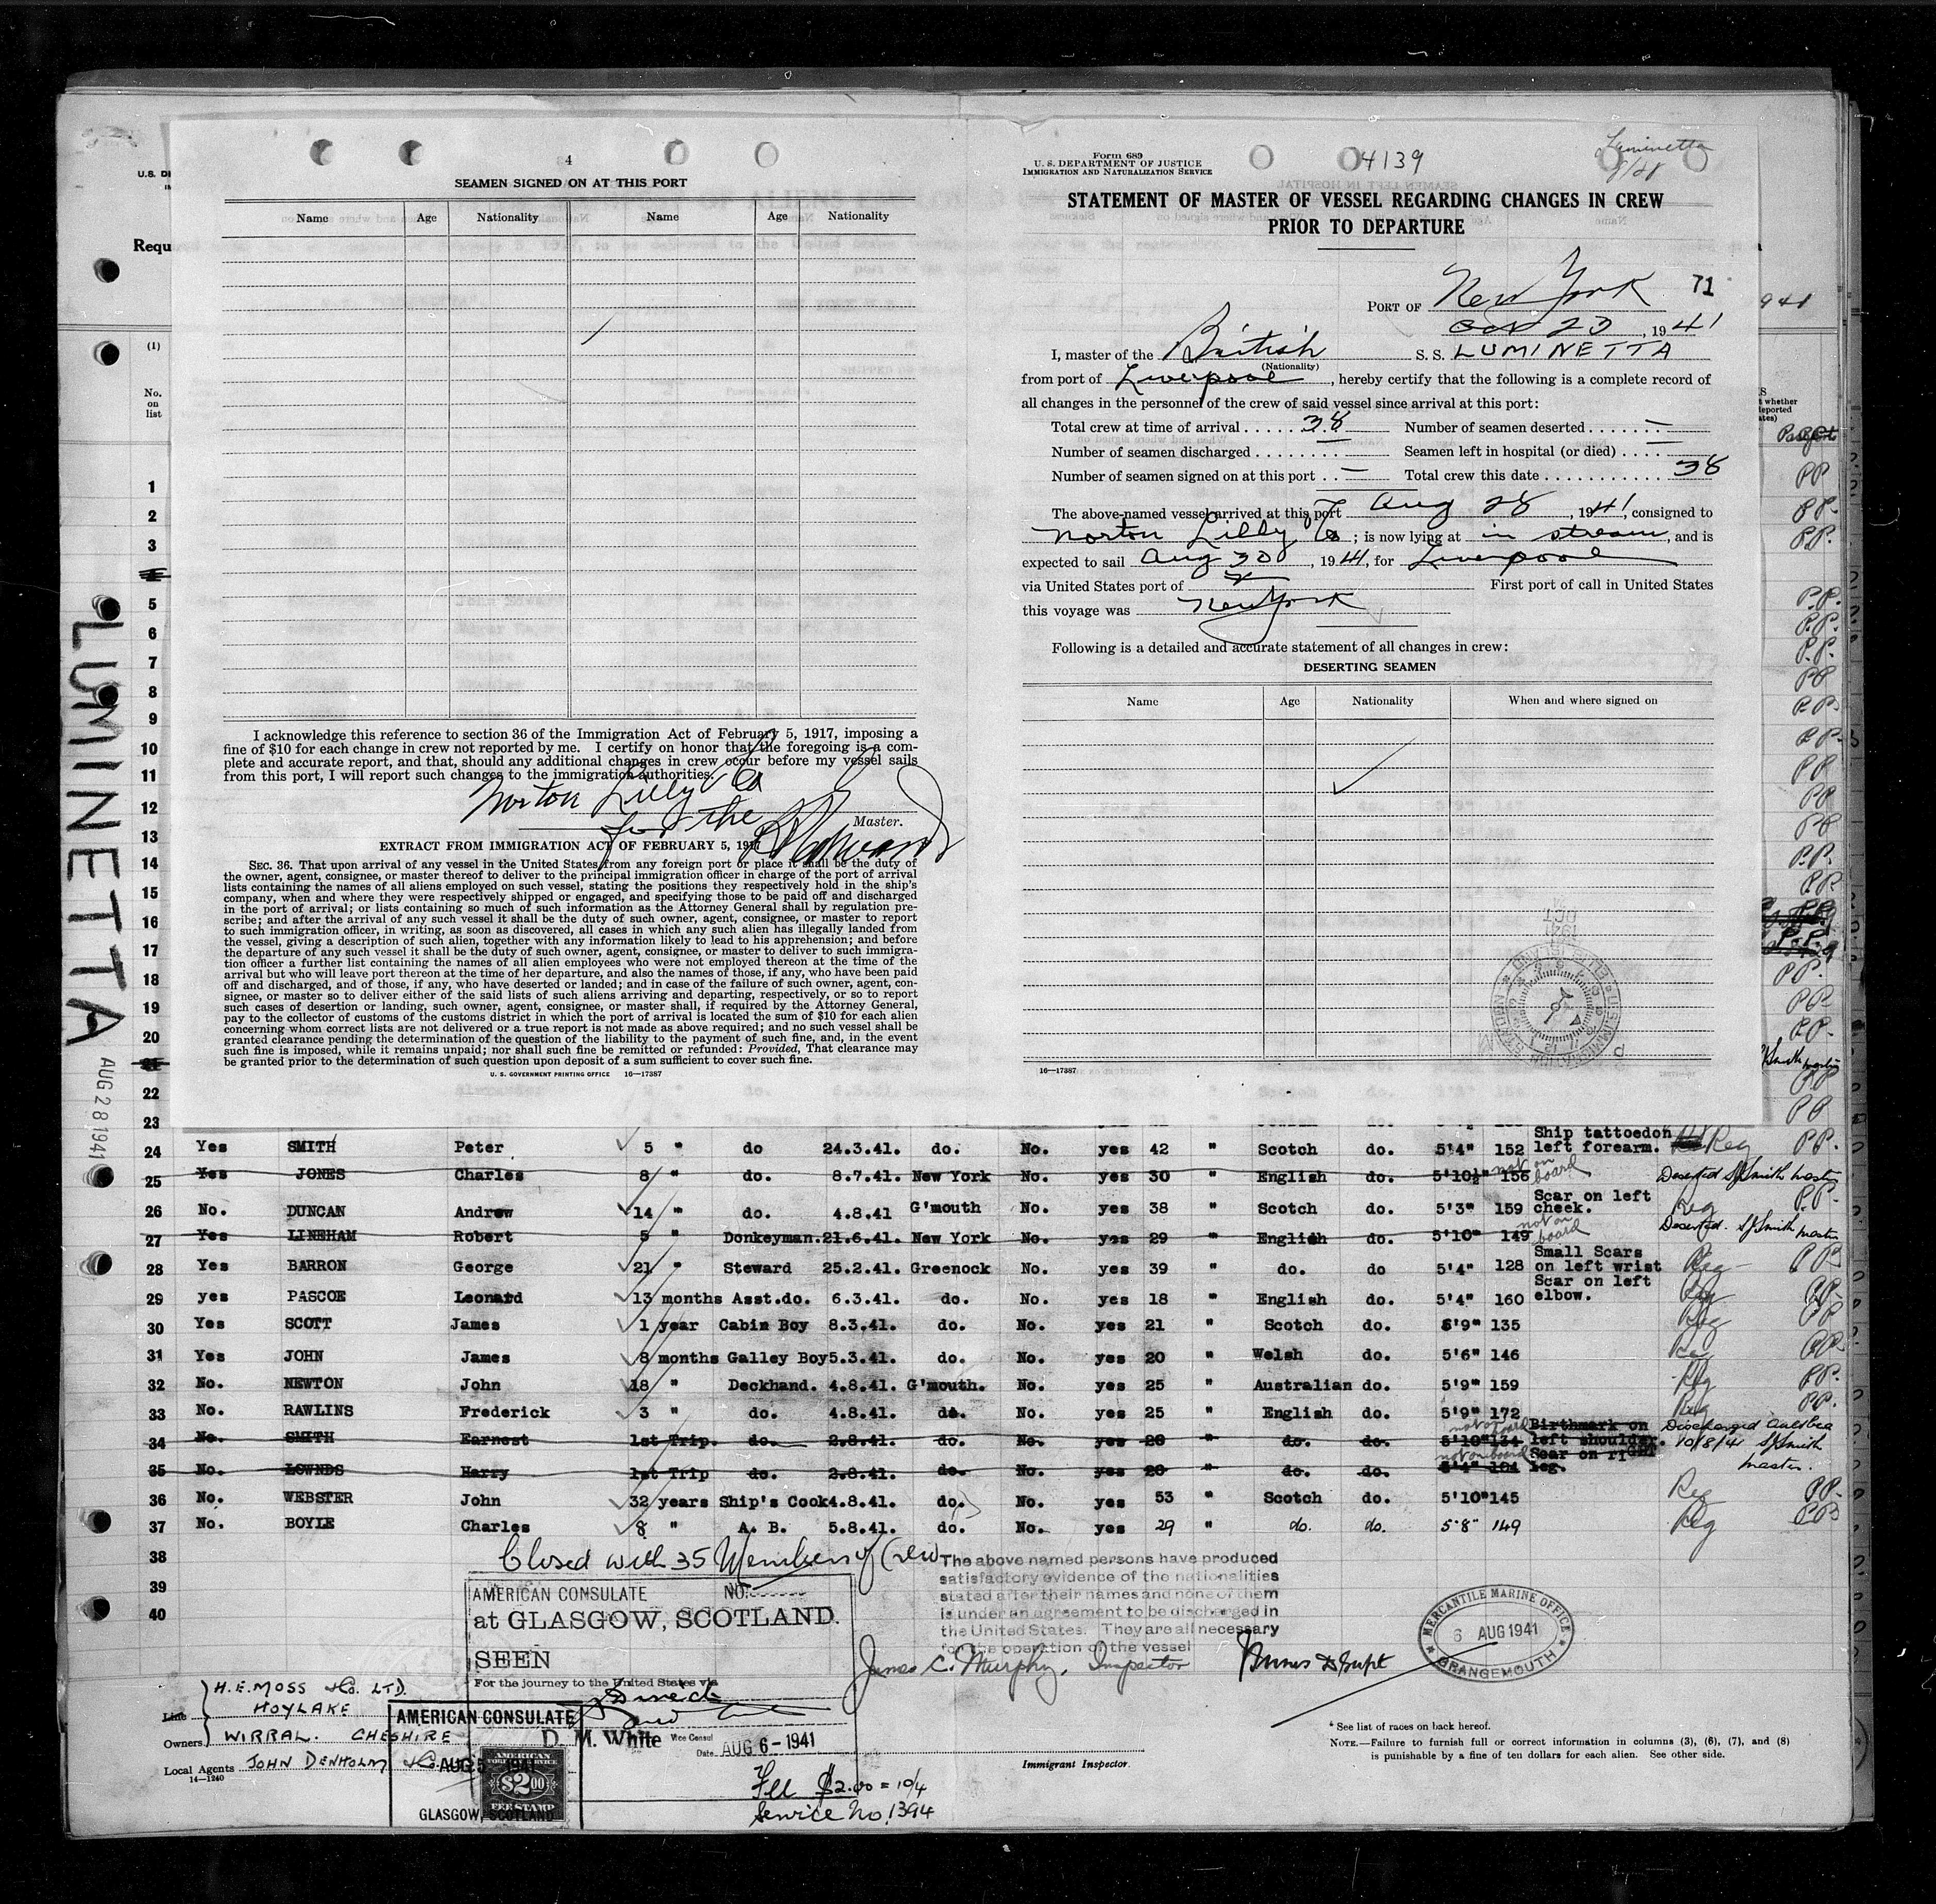 4
SEAMEN SIGNED ON AT THIS PORT
Name Age Nationality Name Age Nationality
I acknowledge this reference to section 36 of the Immigration Act of February 5, 1917, imposing a
fine of $10 for each change in crew not reported by me. I certify on honor that the foregoing is a com-
plete and accurate report, and that, should any additional changes in crew occur before my vessel sails
from this port, I will report such changes to the immigration authorities.
Norton Lilly Co
for the
Master.
EXTRACT FROM IMMIGRATION ACT OF FEBRUARY 5, 1917
SEC. 36. That upon arrival of any vessel in the United States from any foreign port or place it shall be the duty of
the owner, agent, consignee, or master thereof to deliver to the principal immigration officer in charge of the port of arrival
lists containing the names of all aliens employed on such vessel, stating the positions they respectively hold in the ship's
company, when and where they were respectively shipped or engaged, and specifying those to be paid off and discharged
in the port of arrival; or lists containing so much of such information as the Attorney General shall by regulation pre-
scribe; and after the arrival of any such vessel it shall be the duty of such owner, agent, consignee, or master to report
to such immigration officer, in writing, as soon as discovered, all cases in which any such alien has illegally landed from
the vessel, giving a description of such alien, together with any information likely to lead to his apprehension; and before
the departure of any such vessel it shall be the duty of such owner, agent, consignee, or master to deliver to such immigra-
tion officer a further list containing the names of all alien employees who were not employed thereon at the time of the
arrival but who will leave port thereon at the time of her departure, and also the names of those, if any, who have been paid
off and discharged, and of those, if any, who have deserted or landed; and in case of the failure of such owner, agent, con-
signee, or master so to deliver either of the said lists of such aliens arriving and departing, respectively, or so to report
such cases of desertion or landing, such owner, agent, consignee, or master shall, if required by the Attorney General,
pay to the collector of customs of the customs district in which the port of arrival is located the sum of $10 for each alien
concerning whom correct lists are not delivered or a true report is not made as above required; and no such vessel shall be
granted clearance pending the determination of the question of the liability to the payment of such fine, and, in the event
such fine is imposed, while it remains unpaid; nor shall such fine be remitted or refunded: Provided, That clearance may
be granted prior to the determination of such question upon deposit of a sum sufficient to cover such fine.
U. S. GOVERNMENT PRINTING OFFICE 16—17387
Form 689
U. S. DEPARTMENT OF JUSTICE
IMMIGRATION AND NATURALIZATION SERVICE
4139
Luminetta
8/28
STATEMENT OF MASTER OF VESSEL REGARDING CHANGES IN CREW
PRIOR TO DEPARTURE
PORT OF New York 71
Oct 23, 1941
I, master of the British S. S. LUMINETTA
(Nationality)
from port of Liverpool, hereby certify that the following is a complete record of
all changes in the personnel of the crew of said vessel since arrival at this port:
Total crew at time of arrival ..... 38 Number of seamen deserted ...... —
Number of seamen discharged ........ — Seamen left in hospital (or died) .... —
Number of seamen signed on at this port .. — Total crew this date ............ 38
The above-named vessel arrived at this port Aug 28, 1941, consigned to
Norton Lilly & Co; is now lying at in stream, and is
expected to sail Aug 30, 1941, for Liverpool
via United States port of First port of call in United States
this voyage was New York
Following is a detailed and accurate statement of all changes in crew:
DESERTING SEAMEN
Name Age Nationality When and where signed on
16—17387
U.S. DE
Requ
941
(1)
No.
on
list
1
2
3
4
5
6
7
8
9
10
11
12
13
14
15
16
17
18
19
20
21
22
23
LUMINETTA
AUG 28 1941
24 Yes SMITH Peter 5 " do 24.3.41. do. No. yes 42 " Scotch do. 5'4" 152 Ship tattoedon left forearm. Reg PP.
25 Yes JONES Charles 8 " do. 8.7.41. New York No. yes 30 " English do. 5'10½" 156 not on board Deserted SJSmith master
26 No. DUNCAN Andrew 14 " do. 4.8.41 G'mouth No. yes 38 " Scotch do. 5'3" 159 Scar on left cheek. Reg P.P.
27 Yes LINEHAM Robert 5 " Donkeyman. 21.6.41. New York No. yes 29 " English do. 5'10" 149 not on board Deserted. SJSmith master
28 Yes BARRON George 21 " Steward 25.2.41. Greenock No. yes 39 " do. do 5'4" 128 Small Scars on left wrist Reg PP
29 yes PASCOE Leonard 13 months Asst.do. 6.3.41. do. No. yes 18 " English do. 5'4" 160 Scar on left elbow. Reg PP.
30 Yes SCOTT James 1 year Cabin Boy 8.3.41. do. No. yes 21 " Scotch do. 5'9" 135 Reg PP
31 Yes JOHN James 8 months Galley Boy 5.3.41. do. No. yes 20 " Welsh do. 5'6" 146 Reg PP.
32 No. NEWTON John 18 " Deckhand. 4.8.41. G'mouth. No. yes 25 " Australian do. 5'9" 159 Reg PP.
33 No. RAWLINS Frederick 3 " do. 4.8.41. do. No. yes 25 " English do. 5'9" 172 Reg PP.
34 No. SMITH Earnest 1st Trip. do. 2.8.41. do. No. yes 20 " do. do. 5'10" 134 not on board Birthmark on left shoulder. Discharged
35 No. LOWNDS Harry 1st Trip do. 2.8.41. do. No. yes 20 " do. do. 5'4" 104 not on board Scar on right leg. 10/8/41 SJSmith master.
36 No. WEBSTER John 32 years Ship's Cook 4.8.41. do. No. yes 53 " Scotch do. 5'10" 145 Reg PP.
37 No. BOYLE Charles 8 " A. B. 5.8.41. do. No. yes 29 " do. do. 5'8" 149 Reg PP
38
39
40
Closed with 35 Members of Crew
The above named persons have produced
satisfactory evidence of the nationalities
stated after their names and none of them
is under an agreement to be discharged in
the United States. They are all necessary
for the operation of the vessel
James C. Murphy, Inspector
AMERICAN CONSULATE NO.
at GLASGOW, SCOTLAND.
SEEN
For the journey to the United States via
Direct
D. M. White Vice Consul
Date AUG 6 - 1941
Fee $2.00 = 10/4
Service No. 1394
MERCANTILE MARINE OFFICE
6 AUG 1941
GRANGEMOUTH
Line H. E. MOSS & Co. LTD.
HOYLAKE
Owners WIRRAL. CHESHIRE
Local Agents JOHN DENHOLM & Co.
14—1240
AMERICAN CONSULATE
AUG 5 1941
AMERICAN
$2.00
FEE STAMP
GLASGOW, SCOTLAND
Immigrant Inspector.
* See list of races on back hereof.
NOTE.—Failure to furnish full or correct information in columns (3), (6), (7), and (8)
is punishable by a fine of ten dollars for each alien. See other side.